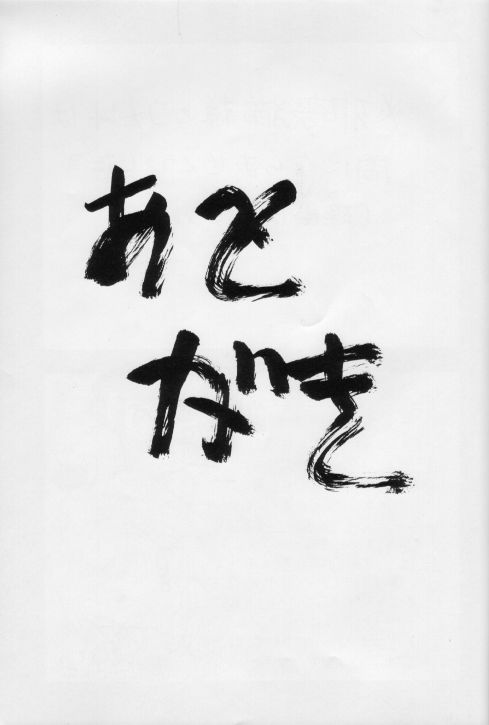 あと
がき